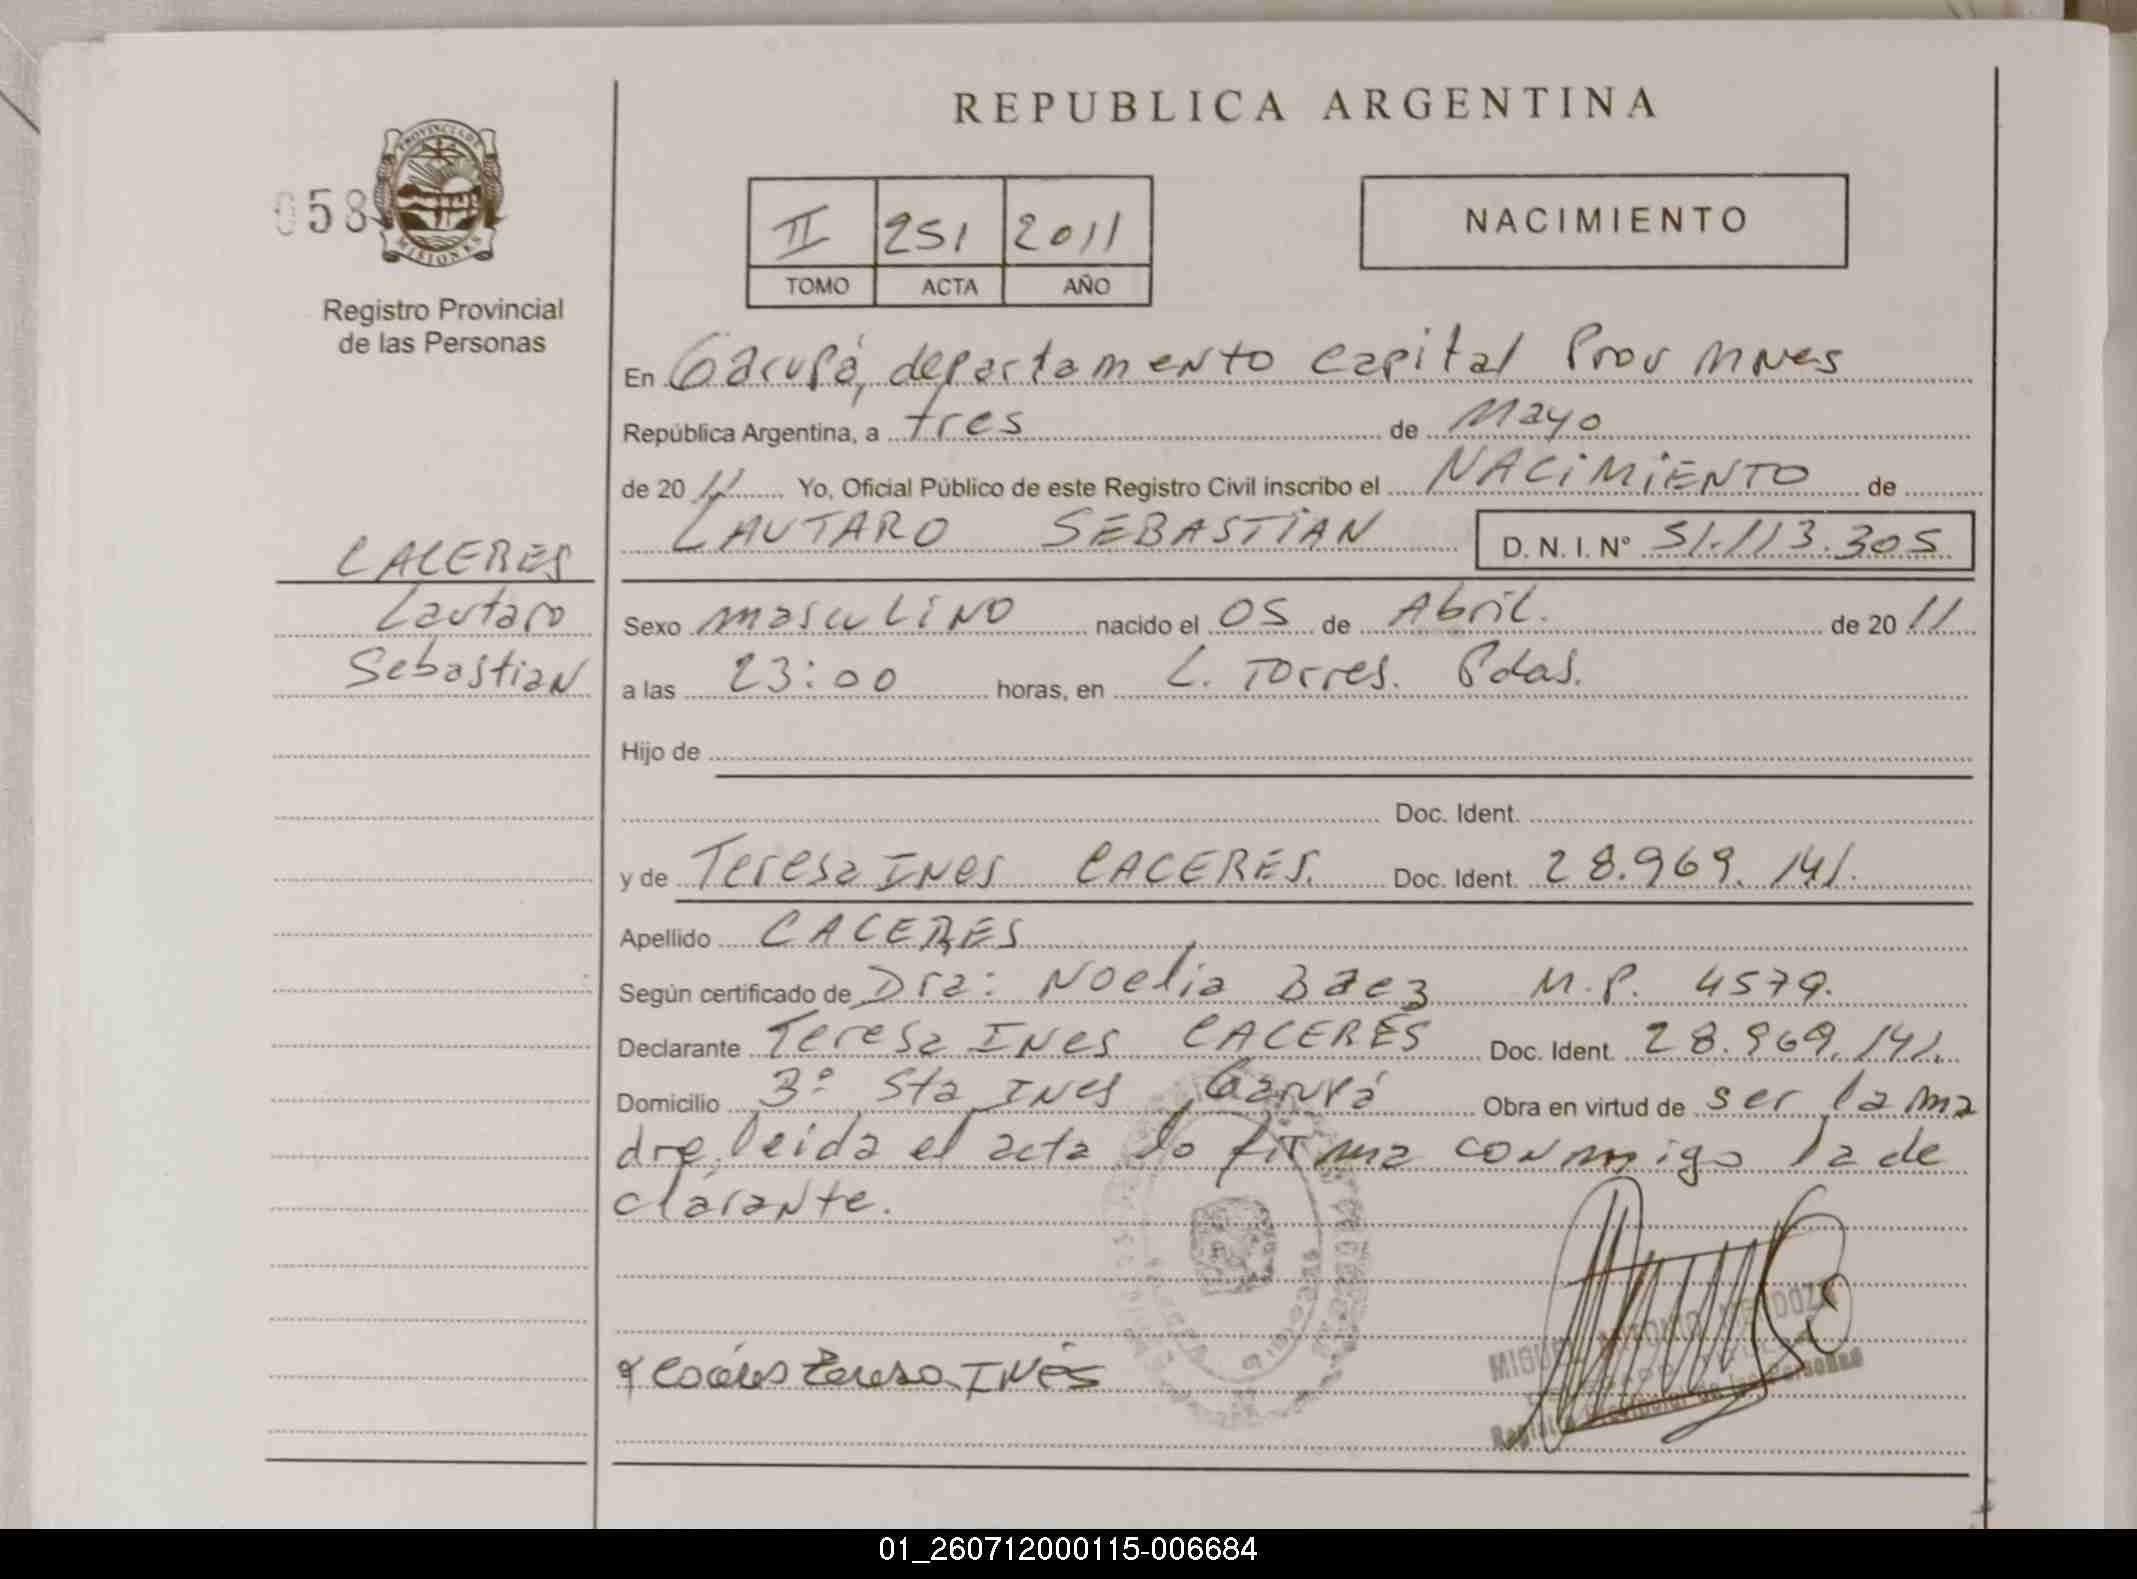 REPUBLICA ARGENTINA
058
PROVINCIA DE
MISIONES
Registro Provincial
de las Personas
II 251 2011
TOMO ACTA AÑO
NACIMIENTO
En Garupá, departamento Capital Prov Mnes
República Argentina, a tres de Mayo
de 2011 Yo, Oficial Público de este Registro Civil inscribo el NACIMIENTO de
LAUTARO SEBASTIAN D. N. I. Nº 51.113.305
CACERES
Lautaro
Sebastian
Sexo masculino nacido el 05 de Abril. de 2011
a las 23:00 horas, en L. Torres. Pdas.
Hijo de
Doc. Ident.
y de Teresa Ines CACERES. Doc. Ident. 28.969.141.
Apellido CACERES
Según certificado de Dra: Noelia Baez M.P. 4579.
Declarante Teresa Ines CACERES Doc. Ident. 28.969.141.
Domicilio 3º Sta Ines Garupá Obra en virtud de ser la ma
dre, leida el acta lo firma conmigo la de
clarante.
Caceres Teresa INés
MIGUEL ANTONIO MENDOZA
Registro Provincial de las Personas
01_260712000115-006684